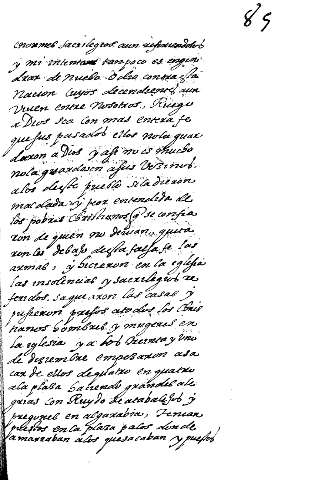 85
enormes sacrilegios aun refiriendolos
y mi intento tampoco es engen
drar de nuebo odio contra la
nacion cuyos decendientes aun
viven entre nosotros, Ruego
a Dios sea con mas entera fe
que sus pasados ellos no la guar
daron a Dios y asi no es mucho
no la guardasen a sus Vezinos.
a los deste pueblo si la dieron
mas dada y peor entendida de
los pobres christianos q se confia
ron de quien no devian, quita
ron les debajo desta falsa fe las
armas, y hicieron en la eglesia
las insolencias y sacrilegios re
feridos, saquearon las casas y
pusieron presos a todos los chris
tianos hombres y mugeres en
la yglesia y a los treinta y uno
de deziembre empezaron a sa
car de ellos de quatro en quatro
a la plaza haciendo grandes ale
grias con Ruydo de atabalejos y
pregones en algarabia, tenian
puestos en la plaza palos donde
amarraban a los que sacaban y puestos